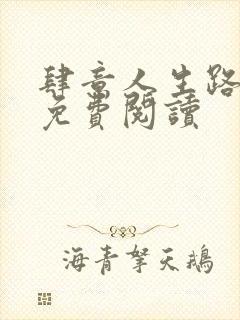 肆意人生路
免費閱讀
海青拏天鵝